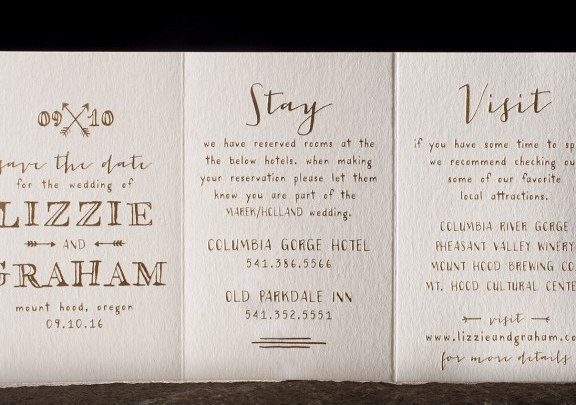 09 10
save the date
for the wedding of
LIZZIE
AND
GRAHAM
mount hood, oregon
09.10.16
Stay
we have reserved rooms at the
the below hotels. when making
your reservation please let them
know you are part of the
MAREK/HOLLAND wedding.
COLUMBIA GORGE HOTEL
541.386.5566
OLD PARKDALE INN
541.352.5551
Visit
if you have some time to
we recommend checking
some of our favorite
local attractions.
COLUMBIA RIVER GORGE
PHEASANT VALLEY WINERY
MOUNT HOOD BREWING CO
MT. HOOD CULTURAL
visit
www.lizzieandgraham.co
for more details